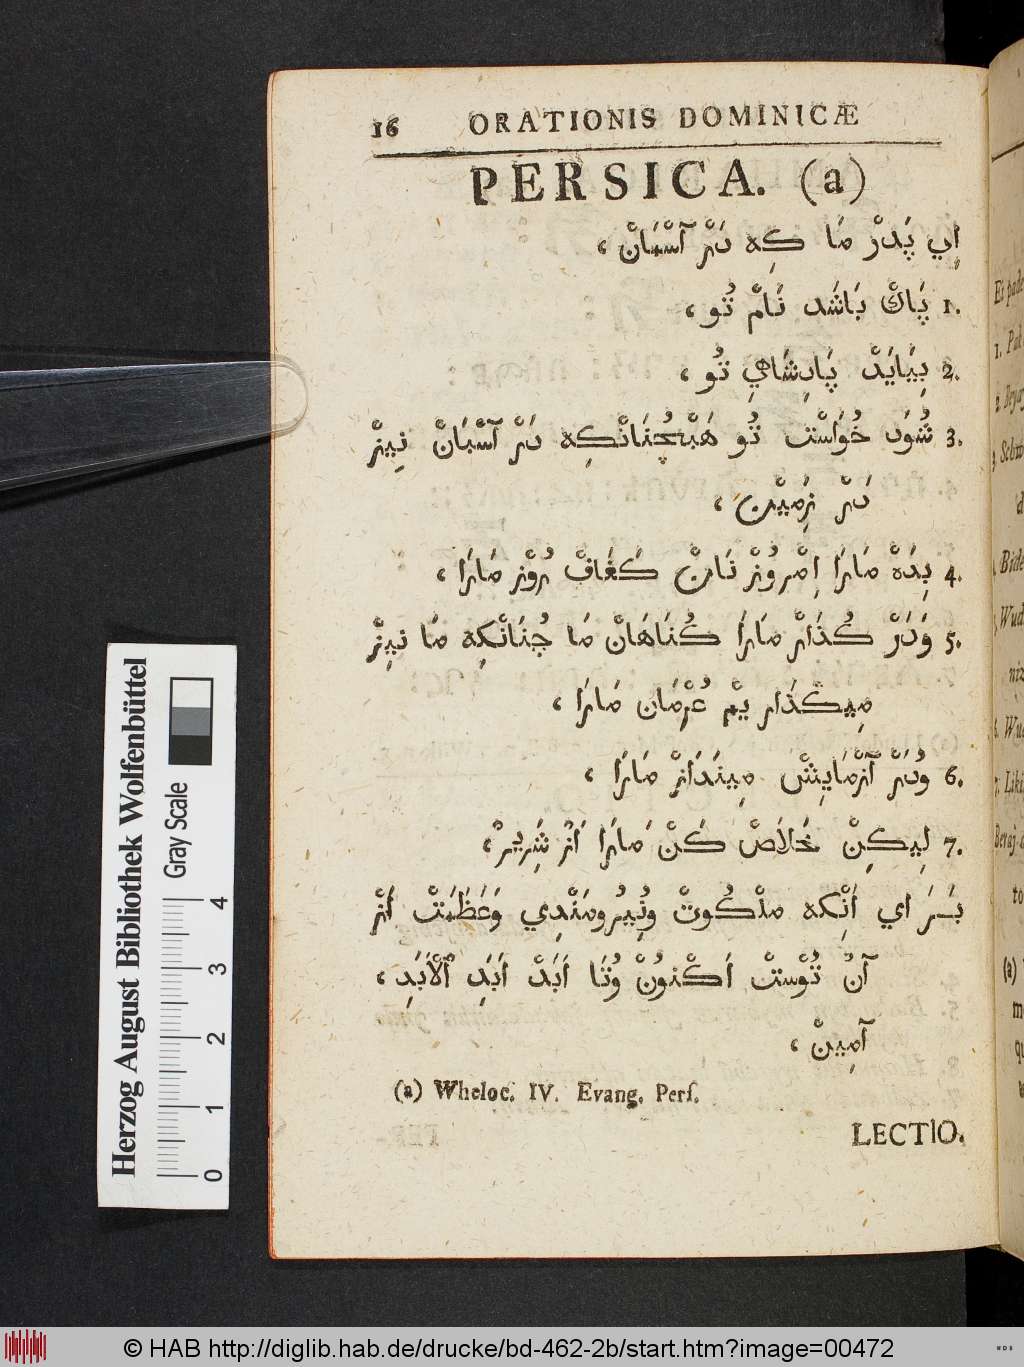 16 ORATIONIS DOMINICÆ
PERSICA. (a)
اي پَدَرْ مَا كِه دَرْ آسْمَانْ ،
1. پَاكْ بَاشَد نَامْ تُو ،
2. بِيَايَدْ پَادِشَاهيِ تُو ،
3. شُوَد خُوَاسْت تُو هَمْچُنَانْكِه دَرْ آسْمَانْ نِيزْ
دَرْ زَمِيْن ،
4. بِدَهْ مَارَا اِمْرُوْزْ نَانْ كَفَافْ رُوْز مَارَا ،
5. وَدَرْ كُذَارْ مَارَا كُنَاهَانْ مَا چُنَانْكِه مَا نِيزْ
مِيكْذَار يْم عُرْمَان مَارَا ،
6. وُدَرْ آزْمَايِشْ مِينَدَازْ مَارَا ،
7. لِيكِنْ خَلَاصْ كَنْ مَارَا اَزْ شَرِيرْ ،
بَرَ اي اَنْكه ملْكُوتْ وَنُيرُومَنْدِي وَعَظَمَتْ اَزْ
آنْ تُوْستْ اَكْنوُنْ وُتَا اَبَدْ اَبَدِ ٱلْاَبَدِ ،
آمِينْ ،
(a) Wheloc. IV. Evang. Perſ.
LECTIO.
Herzog August Bibliothek Wolfenbüttel
Gray Scale
0 1 2 3 4
© HAB http://diglib.hab.de/drucke/bd-462-2b/start.htm?image=00472